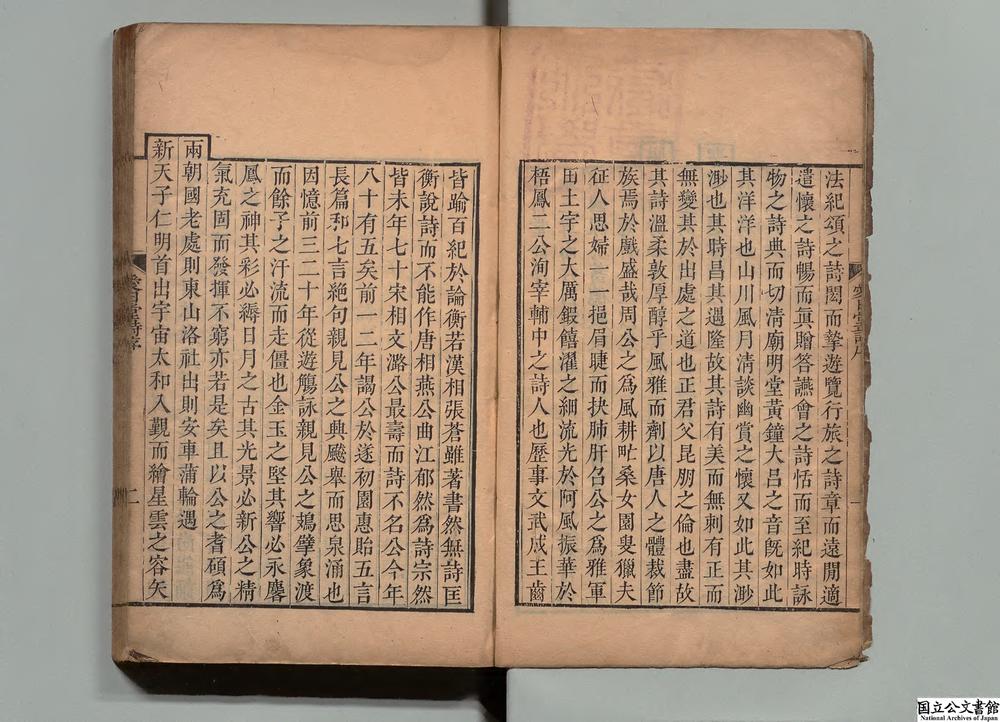 法紀頌之詩閎而摯遊覽行旅之詩章而遠閒適
遣懷之詩暢而眞贈答讌會之詩恬而至紀時詠
物之詩典而切清廟明堂黃鐘大呂之音旣如此
其洋洋也山川風月清談幽賞之懷又如此其渺
渺也其時昌其遇隆故其詩有美而無刺有正而
無變其於出處之道也正君父昆朋之倫也盡故
其詩溫柔敦厚醇乎風雅而劑以唐人之體裁節
族焉於戲盛哉周公之爲風耕甿桑女園叟獵夫
征人思婦一一挹眉睫而抉肺肝召公之爲雅軍
田土宇之大厲鍜饎濯之細流光於阿風振華於
梧鳳二公洵宰輔中之詩人也歷事文武成王齒
皆踰百紀於論衡若漢相張蒼雖著書然無詩匡
衡說詩而不能作唐相燕公曲江郁然爲詩宗然
皆未年七十宋相文潞公最壽而詩不名公今年
八十有五矣前一二年謁公於遂初園惠貽五言
長篇和七言絶句親見公之典颺舉而思泉涌也
因憶前三二十年從遊觴詠親見公之鴂擘象渡
而餘子之汗流而走僵也金玉之堅其響必永麐
鳳之神其彩必縟日月之古其光景必新公之精
氣充固而發揮不窮亦若是矣且以公之耆碩爲
兩朝國老處則東山洛社出則安車蒲輪遇
新天子仁明首出宇宙太和入覲而繪星雲之容矢
二
国立公文書館
National Archives of Japan